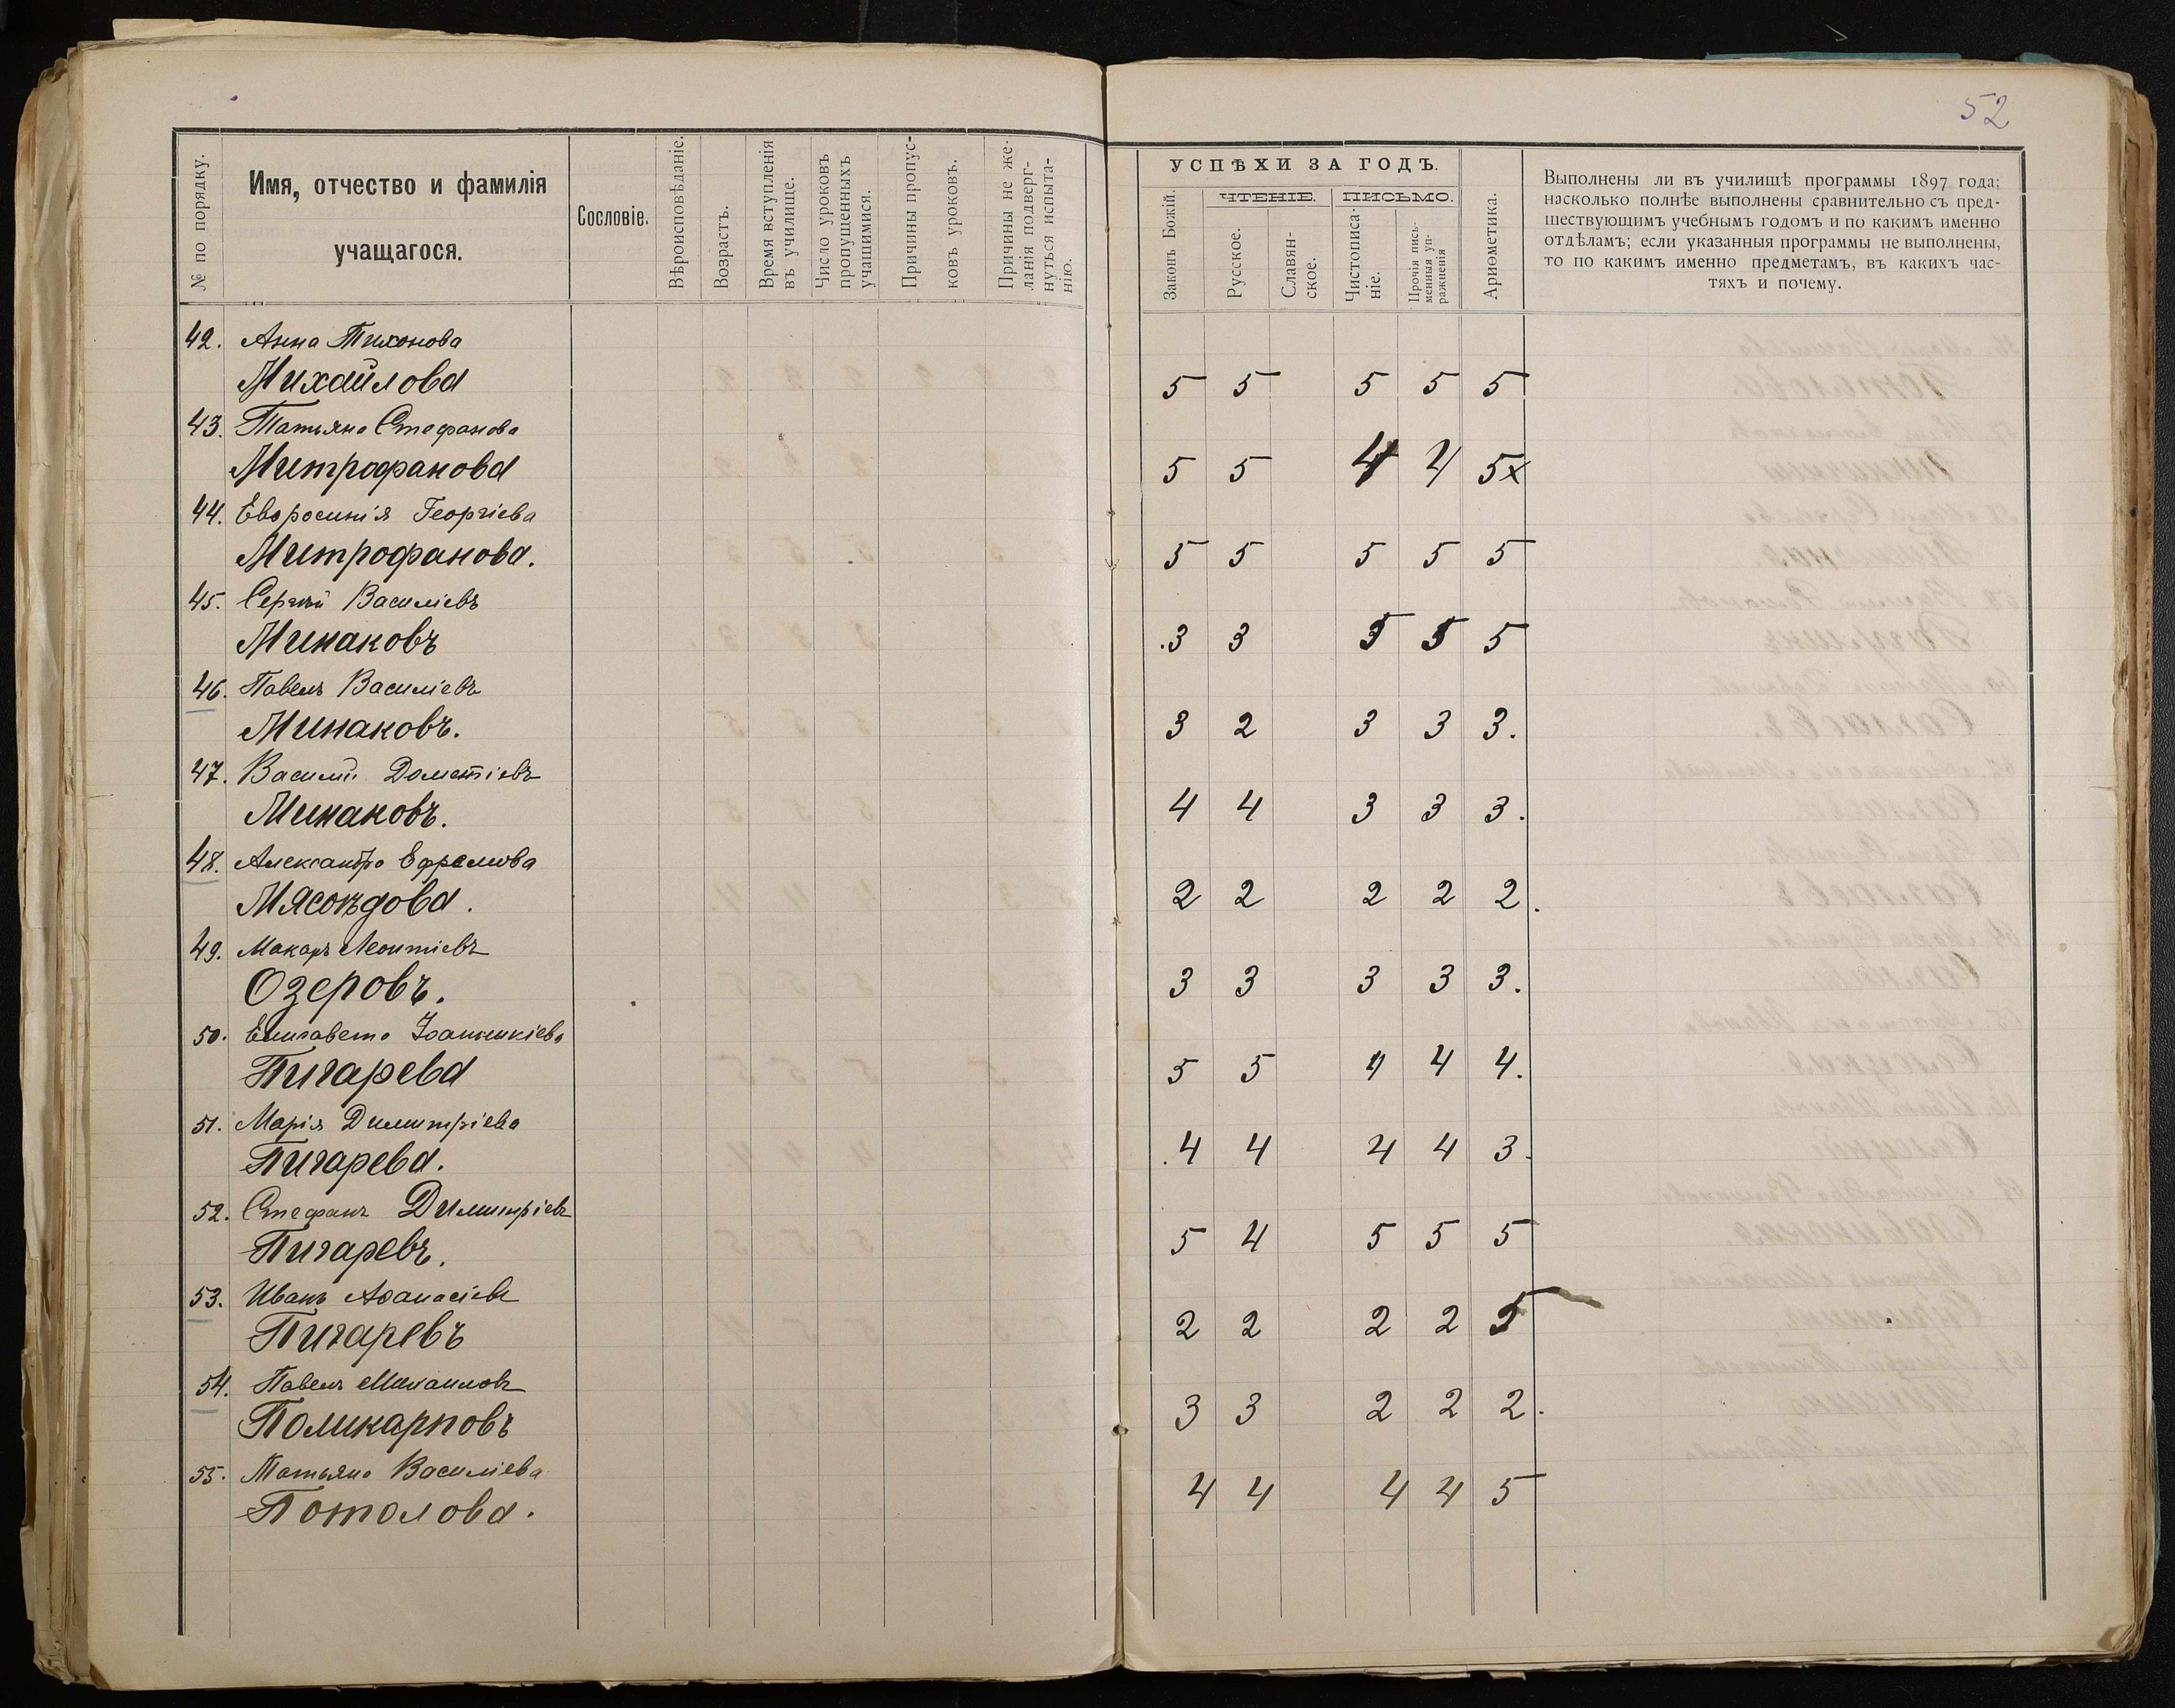 52
№ по порядку.
Имя, отчество и фамилія
учащагося.
Сословіе.
Вѣроисповѣданіе.
Возрастъ.
Время вступленія
въ училище.
Число уроковъ
пропущенныхъ
учащимися.
Причины пропус-
ковъ уроковъ.
Причины не же-
ланія подверг-
нуться испыта-
нію.
УСПѢХИ ЗА ГОДЪ.
Законъ Божій.
ЧТЕНІЕ.
Русское.
Славян-
ское.
ПИСЬМО.
Чистописа-
ніе.
Прочія пись-
менныя уп-
ражненія
Ариѳметика.
Выполнены ли въ училищѣ программы 1897 года;
насколько полнѣе выполнены сравнительно съ пред-
шествующимъ учебнымъ годомъ и по какимъ именно
отдѣламъ; если указанныя программы не выполнены,
то по какимъ именно предметамъ, въ какихъ час-
тяхъ и почему.
42. Анна Тихонова
Михайлова 5 5 5 5 5
43. Татьяна Стефанова
Митрофанова 5 5 4 4 5x
44. Евфросинія Георгіева
Митрофанова. 5 5 5 5 5
45. Сергѣй Василіевъ
Минаковъ 3 3 5 5 5
46. Павелъ Василіевъ
Минаковъ. 3 2 3 3 3.
47. Василій Дометіевъ
Минаковъ. 4 4 3 3 3.
48. Александра Ефремова
Мясоѣдова. 2 2 2 2 2.
49. Макаръ Леонтіевъ
Озеровъ. 3 3 3 3 3.
50. Елисавета
Пигарева 5 5 4 4 4.
51. Марія Димитріева
Пигарева. 4 4 4 4 3.
52. Стефанъ Димитріевъ
Пигаревъ. 5 4 5 5 5
53. Иванъ Аѳанасіевъ
Пигаревъ 2 2 2 2 5
54. Павелъ Михаиловъ
Поликарповъ 3 3 2 2 2.
55. Татьяна Василіева
Потолова. 4 4 4 4 5